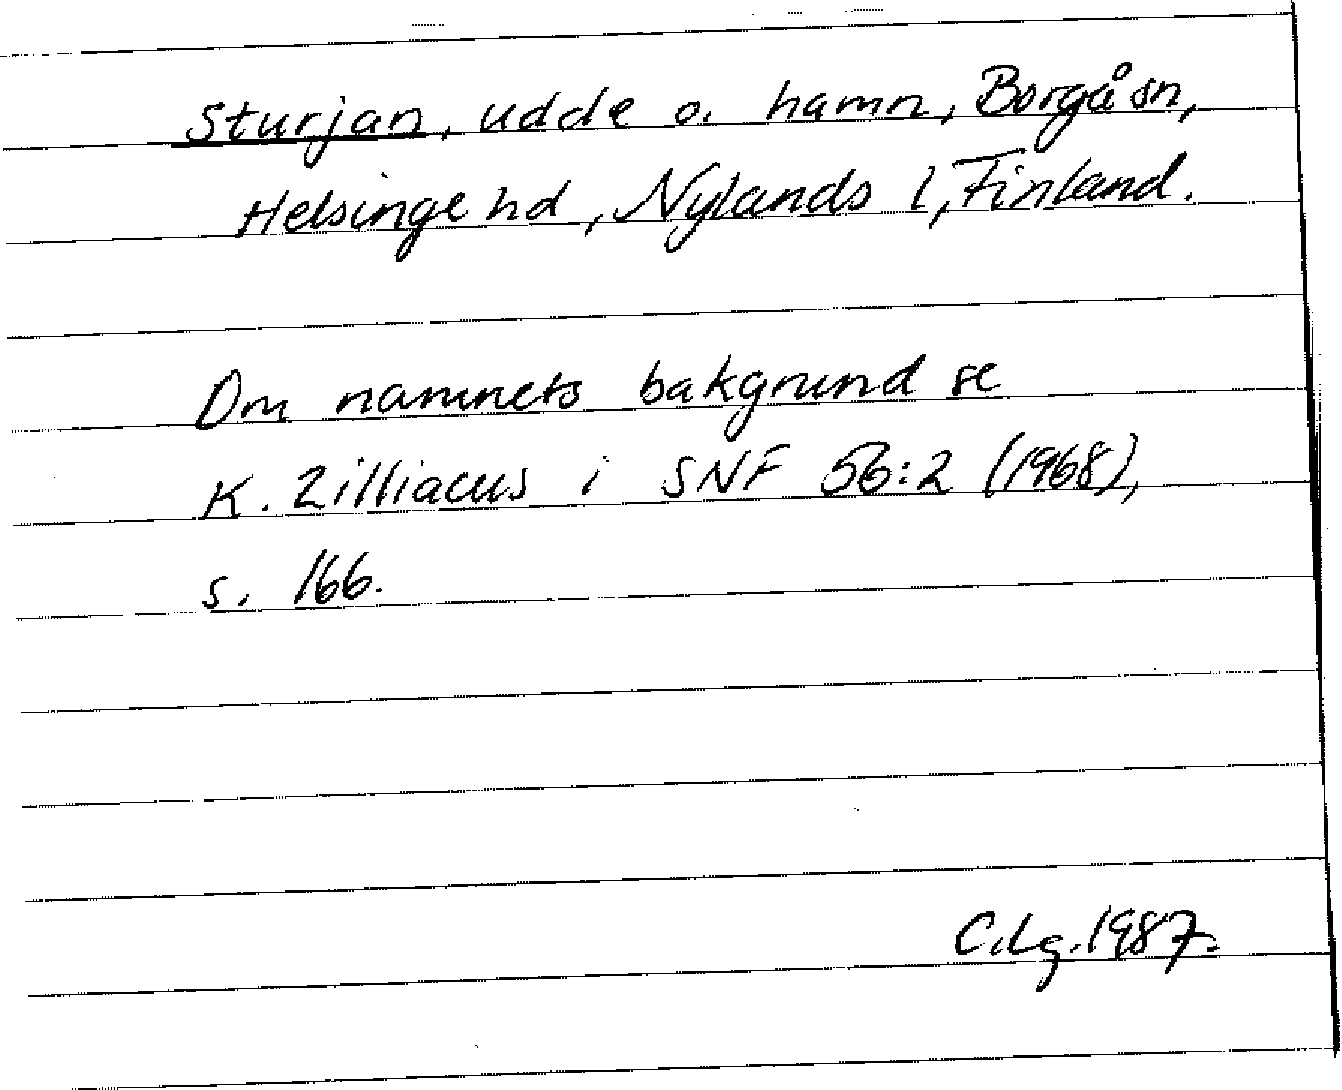 Sturjan, udde o. hamn, Borgå sn,
Helsinge hd, Nylands l, Finland.
Om namnets bakgrund se
K. Zilliacus i SNF 56:2 (1968),
s. 166.
C.Lg. 1987.